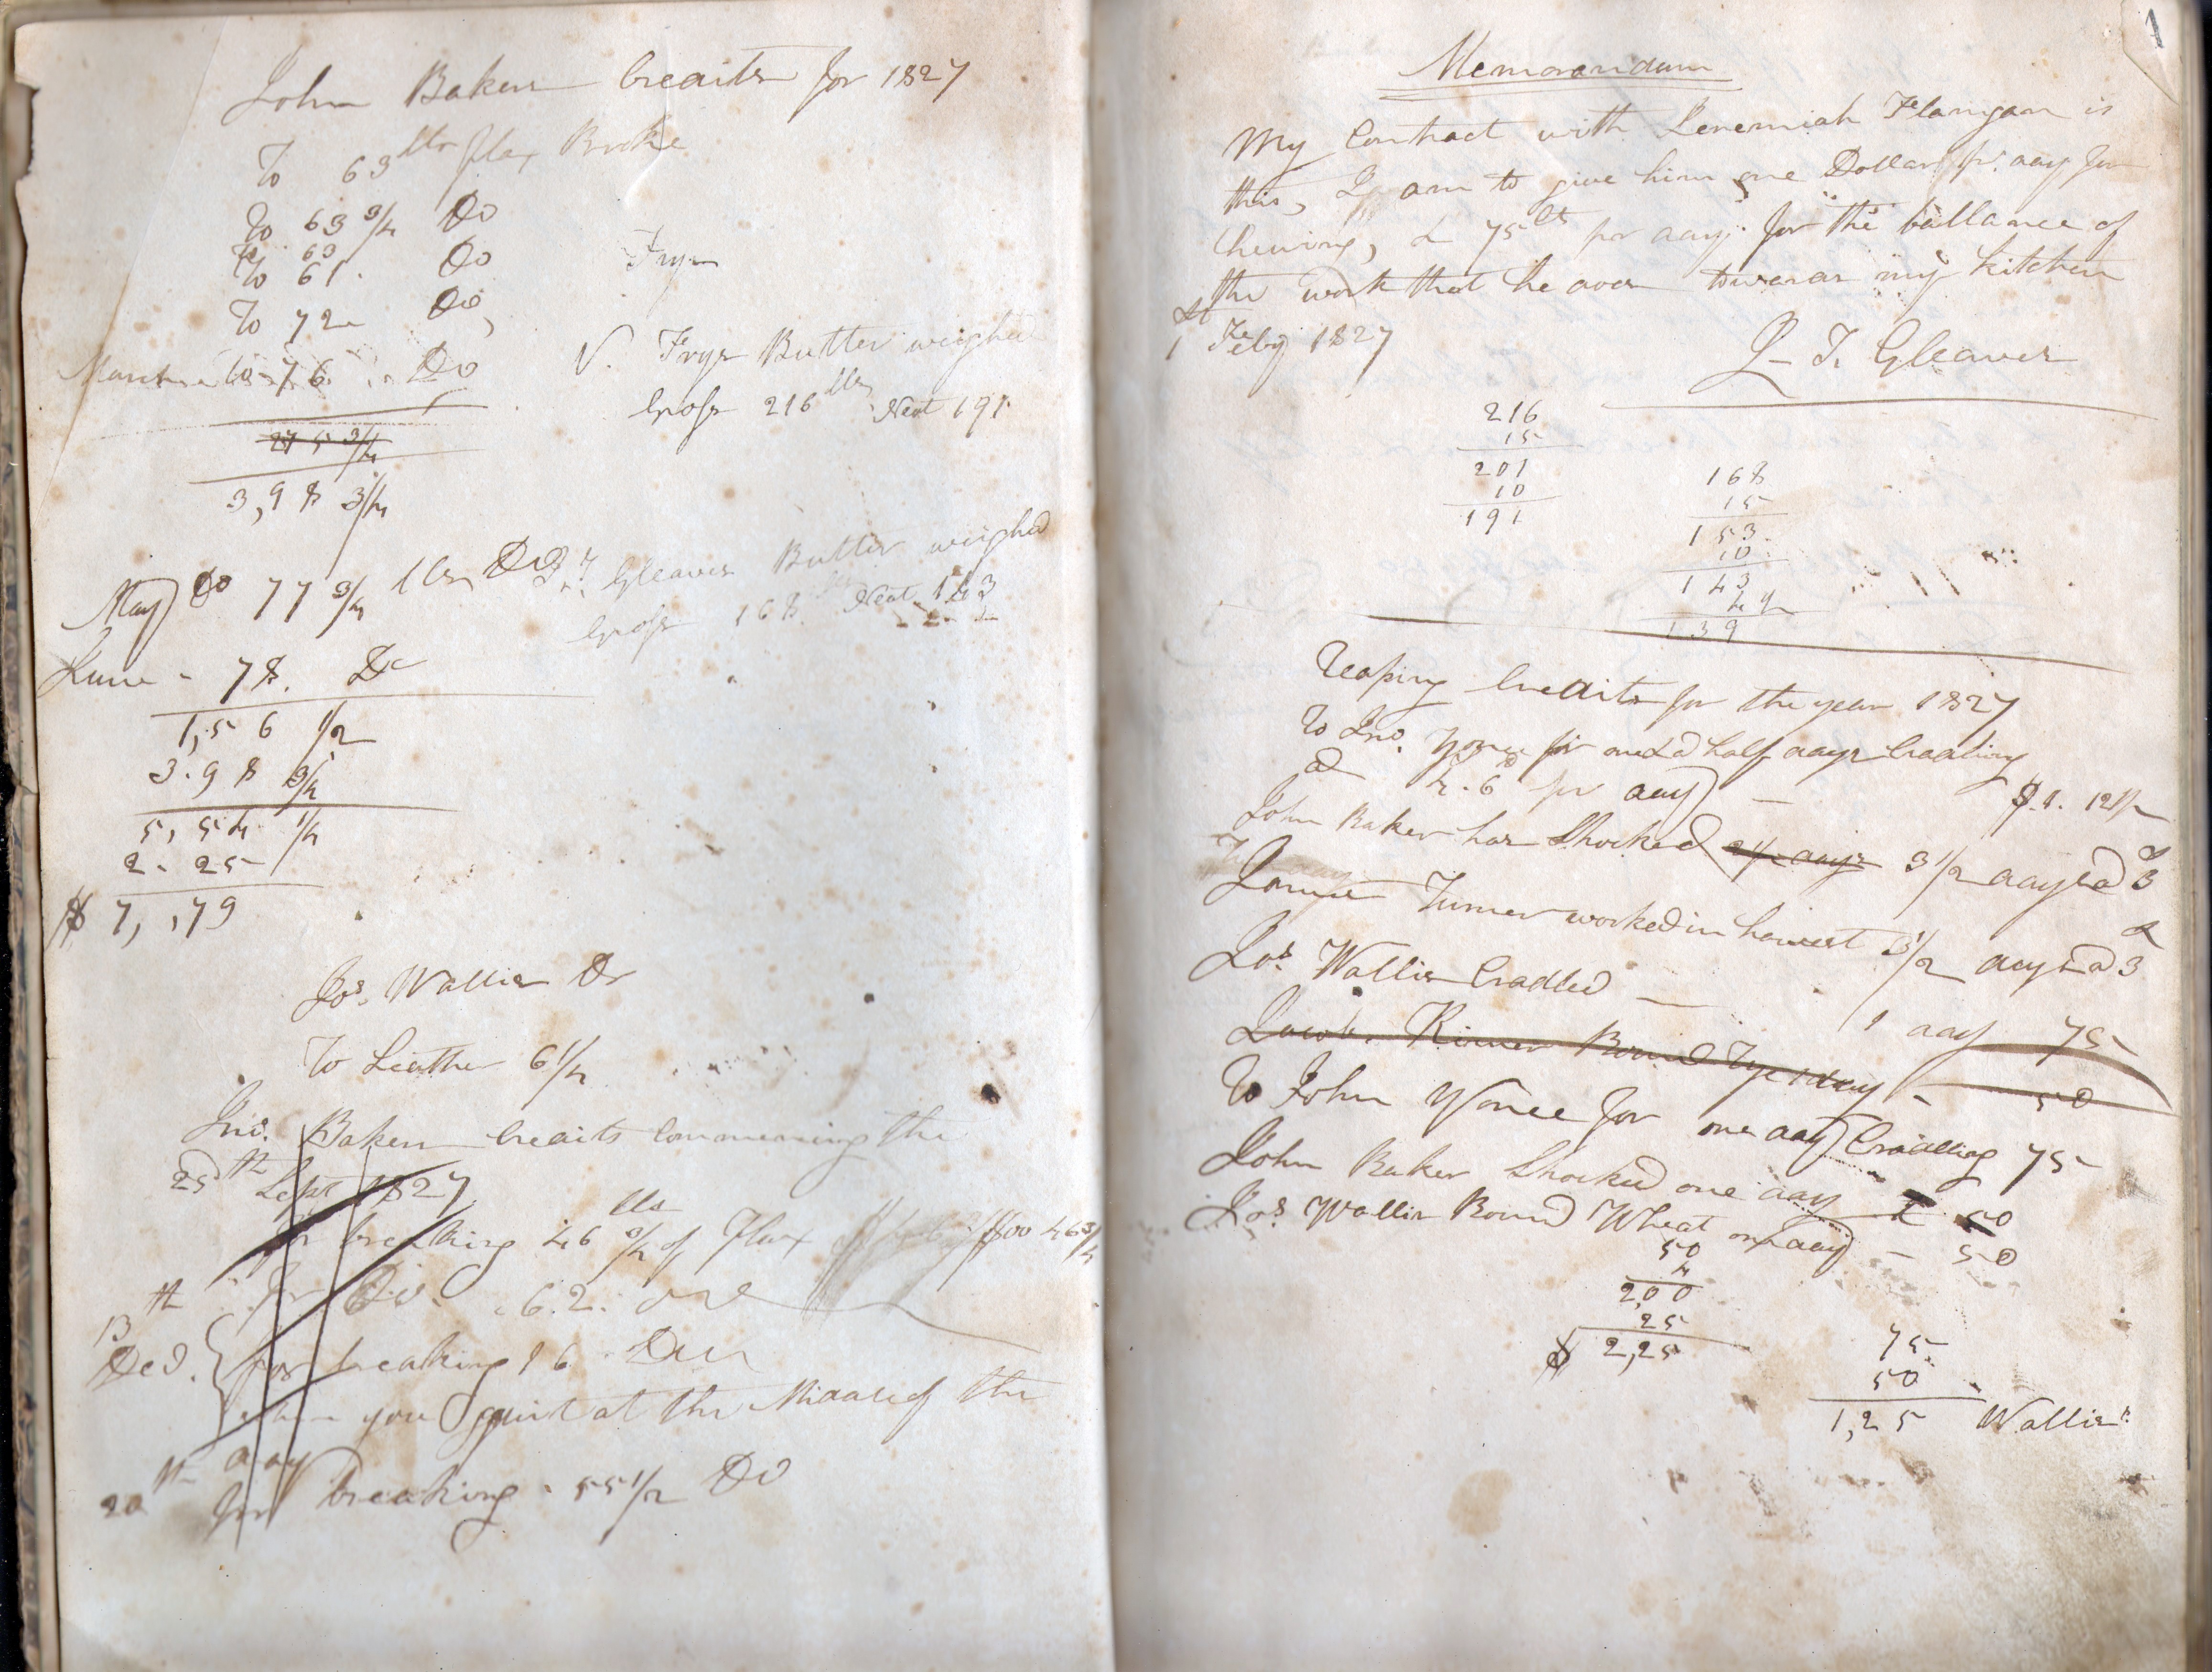 John Bakers Creaits for 1827
To 63 lbs flax Broke
To 63 3/4 Do
To 63
To 61. Do
To 72 Do,
March to 76 Do
275 3/4
3,98 3/4
Frys
Frys Butter weighed
Gross 216 lbs Neat 191
May Do 77 3/4 lbs Do
Gleaves Butter weighed
Gross 168 lbs Neat 143
June - 78. Do
1,56 1/2
3.98 3/4
5,54 1/4
2.25
$ 7,,79
Jos. Wallis Dr
To Leather 6 1/4
Jno. Bakers Creaits Commencing the
25th Sept 1827
for breaking 46 3/4 of Flax $00 46 3/4
for Do. 62.
13th Ded. for breaking 16 Do
when you quit at the Midale of the
aay
20th for breaking 55 1/2 Do
1
Memorandum
My Contract with Jeremiah Flanigan is
this, I am to give him one Dollar pr. aay for
hewing, & 75 cts per aay for the ballance of
the work that he aoes towaras my kitchen
1st Feby 1827
T. Gleaves
216
15
201
10
191
168
15
153
10
143
4
139
Reaping Creaits for the year 1827
To Jno. Yonce for one & a half aays Craaling
a 4.6 pr aay — $.1.12 1/2
John Baker has Shocked 2 1/2 aays 3 1/2 aays a 3
James Turner worked in harvest 3 1/2 aays a 3
Jos. Wallis Cradled — 1 aay 75
Jacob. Kinser Bound Rye 1 day - 50
To John Yonce for one aay Craalling 75
John Baker Shocked one aay 50
Jos. Wallis Bound Wheat one aay — 50
50
4
2,00
25
$ 2,25
75
50
1,25 Wallis